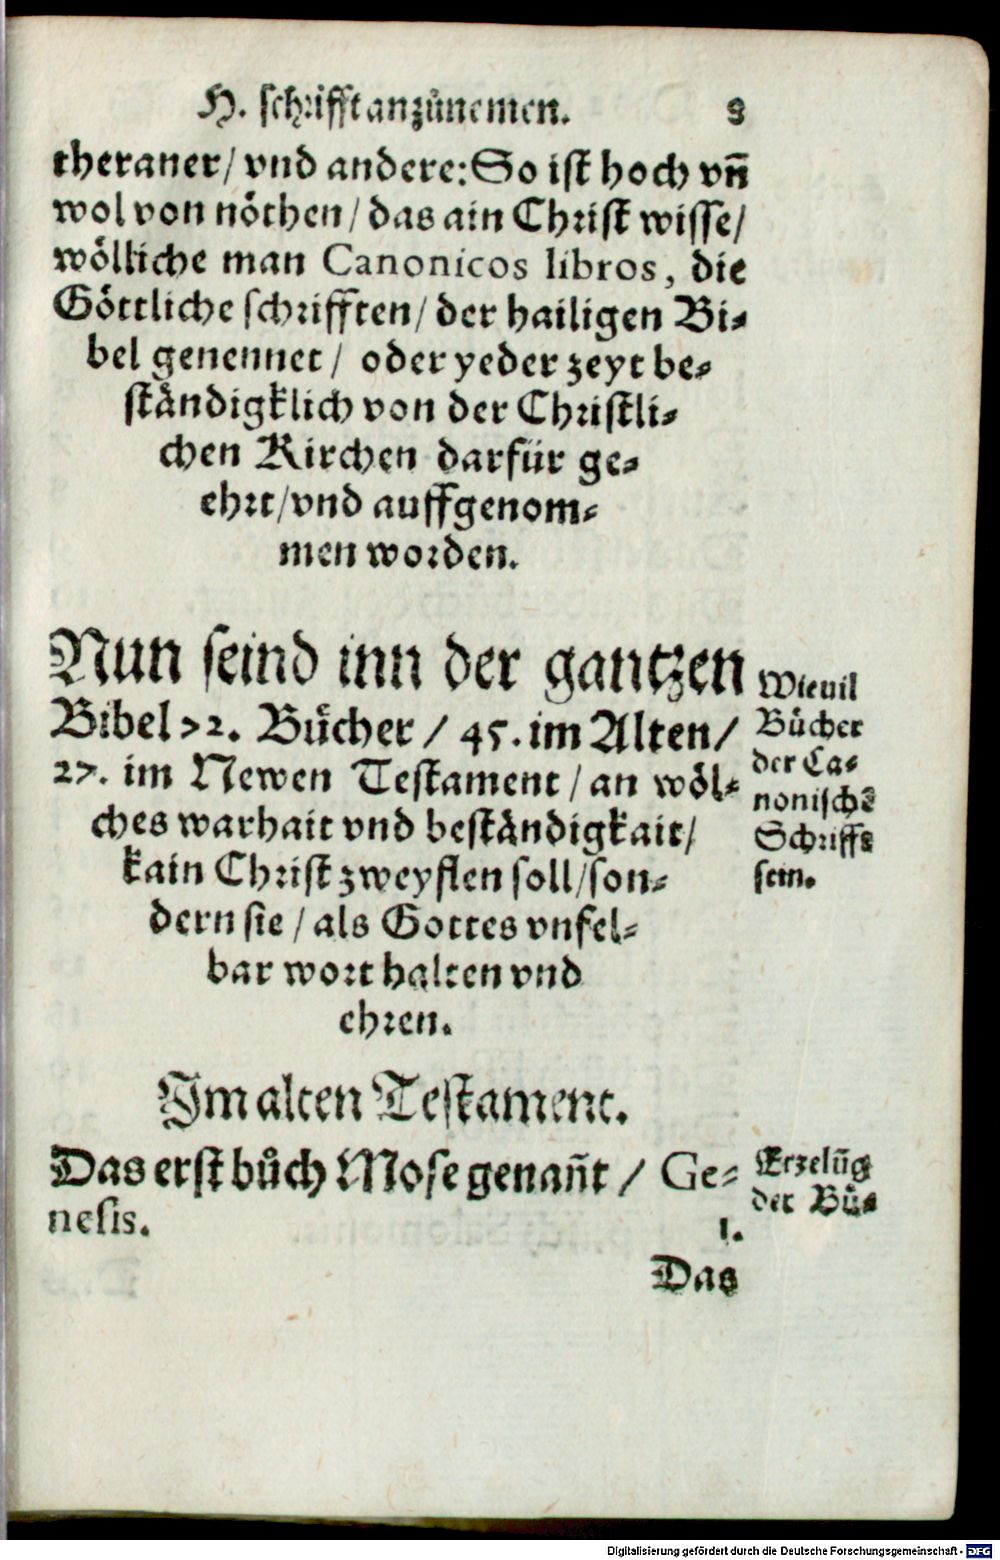 H. schrifft anzůnemen. 8
theraner/ vnd andere: So ist hoch vñ
wol von nöthen/ das ain Christ wisse/
wölliche man Canonicos libros, die
Göttliche schrifften/ der hailigen Bi⸗
bel genennet/ oder yeder zeyt be⸗
ständigklich von der Christli⸗
chen Kirchen darfür ge⸗
ehrt/ vnd auffgenom⸗
men worden.
Nun seind inn der gantzen
Bibel 72. Bücher / 45. im Alten/
27. im Newen Testament / an wöl⸗
ches warhait vnd beständigkait/
kain Christ zweyflen soll/ son⸗
dern sie / als Gottes vnfel⸗
bar wort halten vnd
ehren.
Wieuil
Bücher
der Ca⸗
nonischē
Schrifft
sein.
Im alten Testament.
Das erst bůch Mose genañt / Ge⸗
nesis. 1.
Erzelũg
der Bü⸗
Das
Digitalisierung gefördert durch die Deutsche Forschungsgemeinschaft - DFG